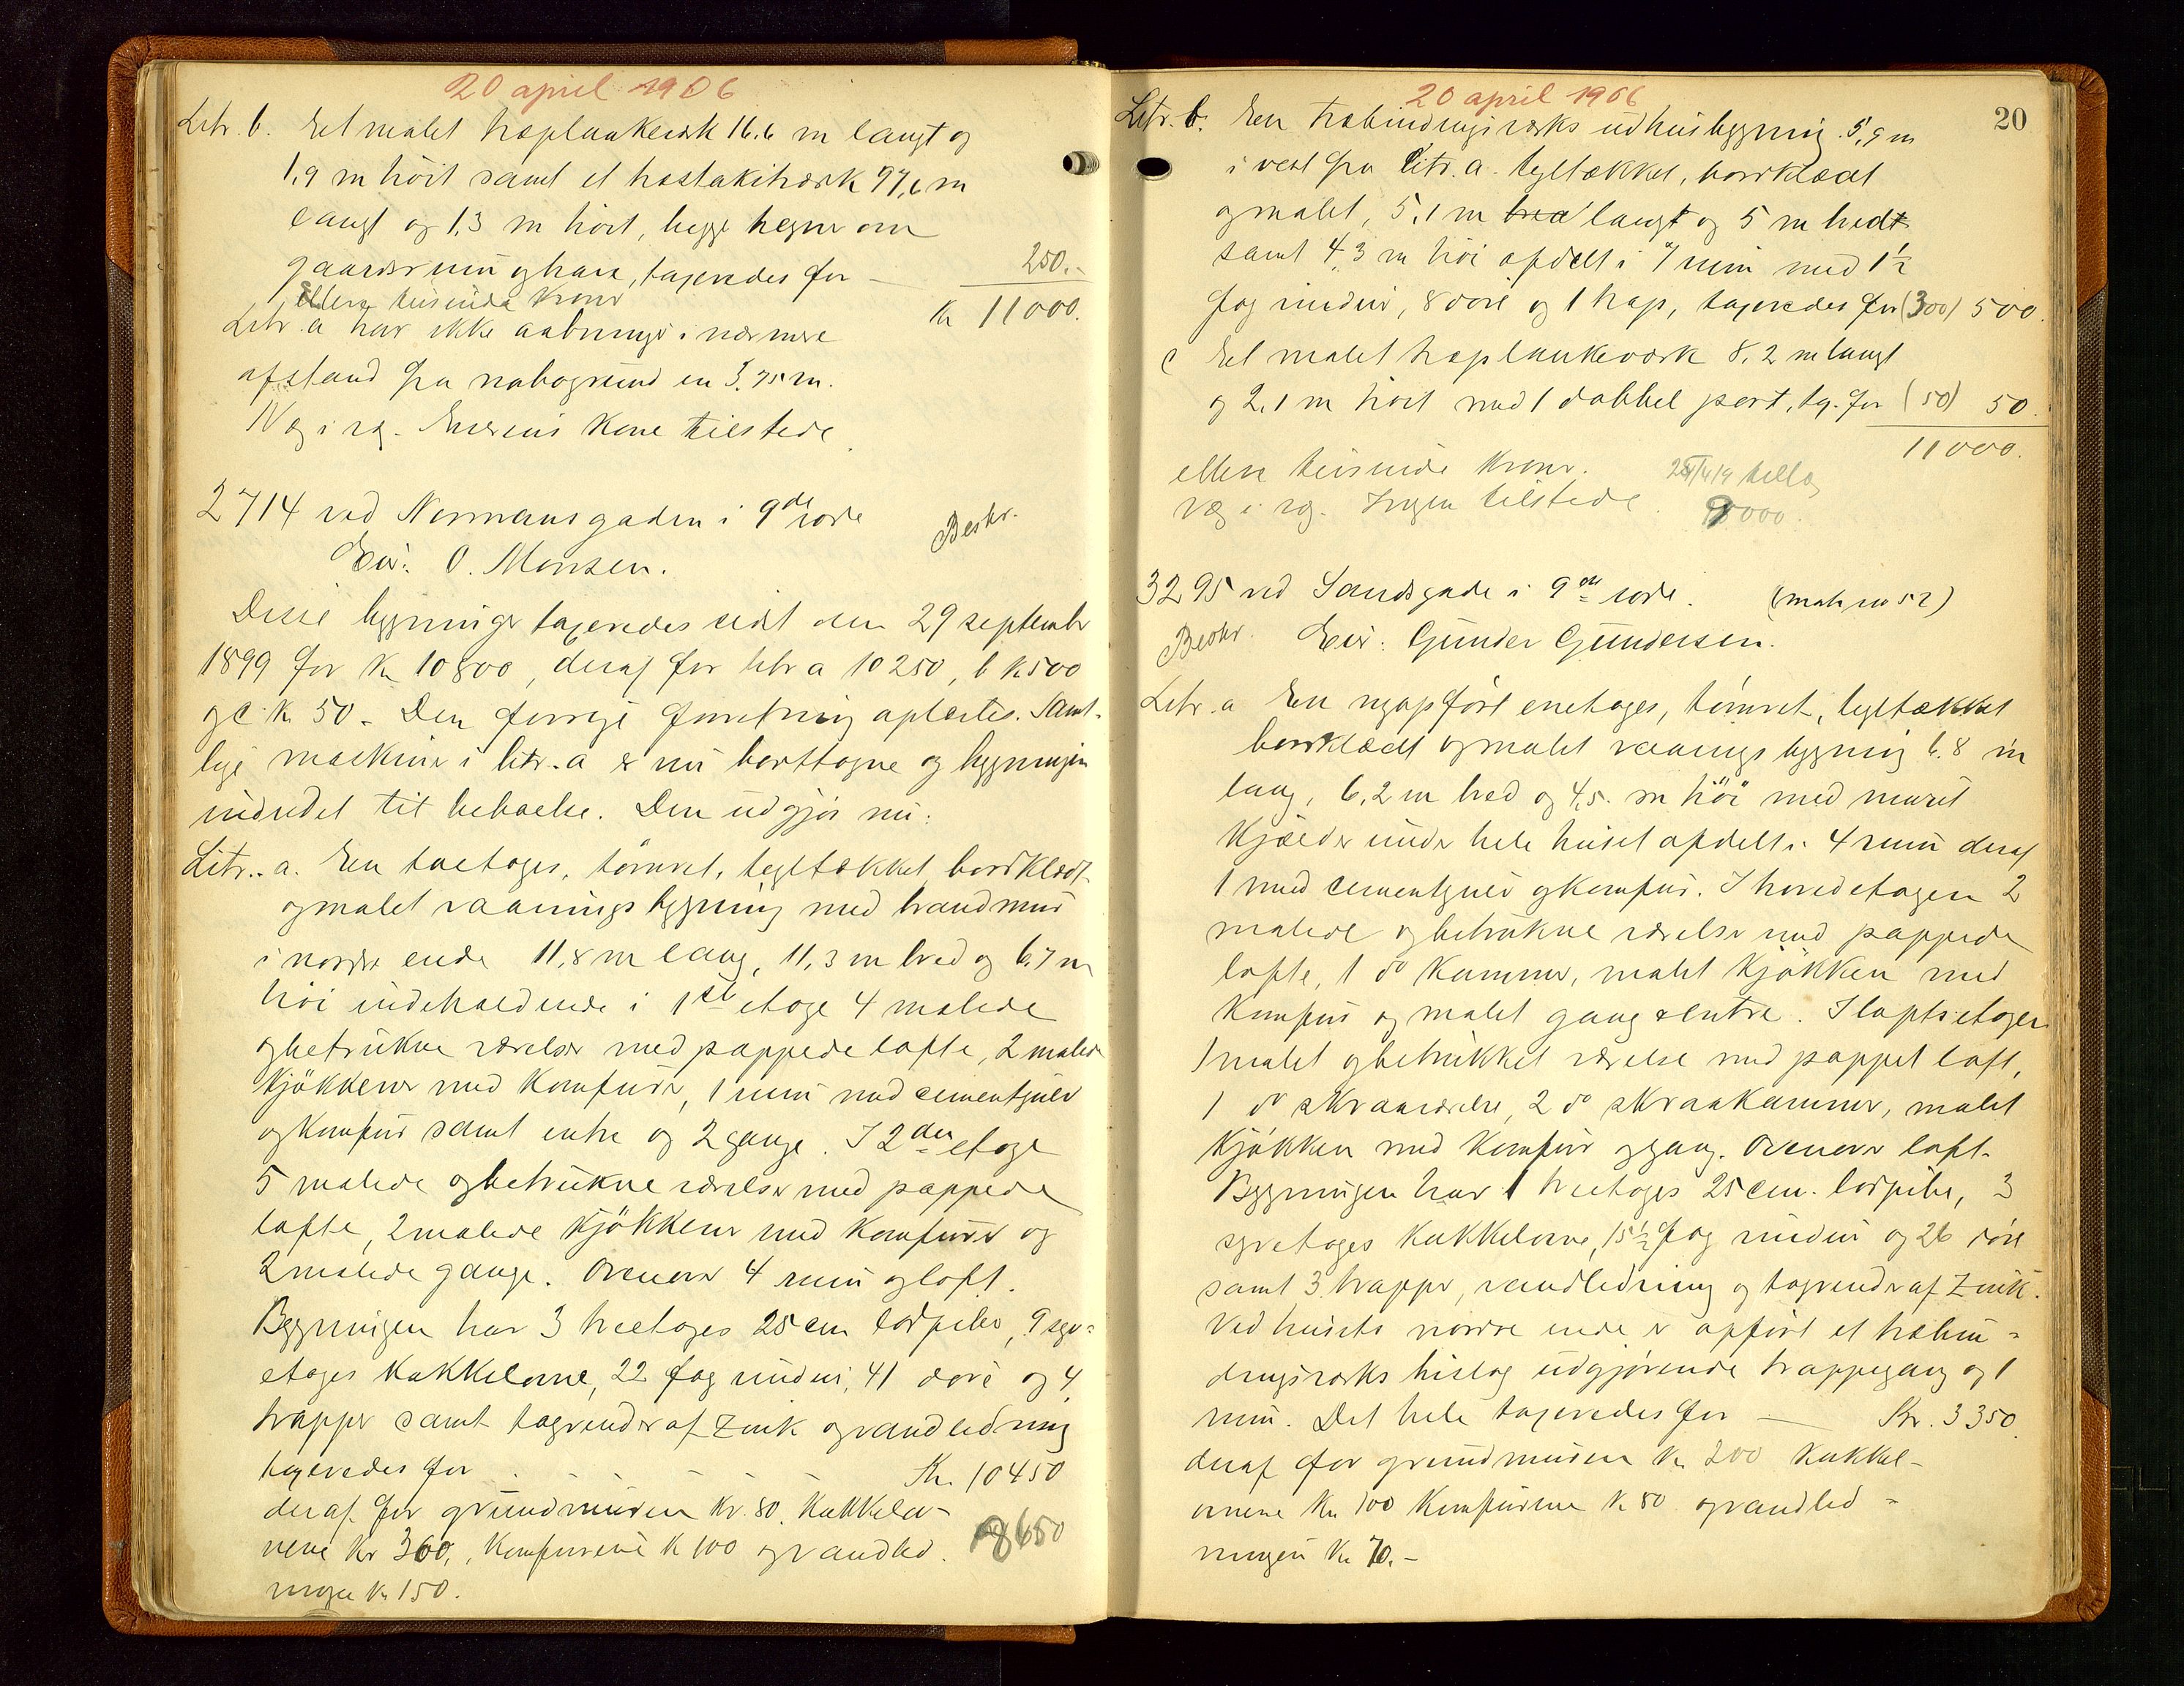 20 april 1906
Litr. b. Et malet træplankeværk 16.6 m langt og
1,9 m høit samt et træstakitværk 97,6 m
langt og 1.3 m høit, begge hegner om
gaardsrum og have, taxeredes for — 250.-
Kr 11000.
elleve tusinde kroner
Litr. a har ikke aabninger i nærmere
afstand fra nabogrund en 3.75 m.
Væg i rg. Eierens kone tilstede
2714 ved Normansgaden i 9de rode
Beskr.
Eier: O. Monsen.
Disse bygninger taxeredes sidst den 29 september
1899 for Kr 10800, deraf for litr a 10250, b kr 500
og c kr. 50. Den forrige forretning oplæstes. Samt-
lige maskiner i litr. a er nu borttagne og bygningen
indredet til beboelse. Den udgjør nu:
Litr. a. En toetages, tømret, tegltækket, bordklædt
og malet vaaningsbygning med brandmur
i nordre ende 11,8 m lang, 11,3 m bred og 6.7 m
høi indeholdende i 1ste etage 4 malede
og betrukne værelser med pappede lofte, 2 malede
kjøkkener med komfurer, 1 rum med cementgulv
og komfur samt entre og 2 gange. I 2den etage
5 malede og betrukne værelser med pappede
lofte, 2 malede kjøkkener med komfurer og
2 malede gange. Ovenover 4 rum og loft.
Bygningen har 3 treetages 25 cm lodpiber, 9 syv-
etages kakkelovne, 22 fag vinduer, 41 døre og 4
trapper samt tagrender af zink og vandledning
taxeredes for Kr. 10450
deraf for grundmuren kr. 80, kakkelov-
nene kr 360, komfurerne kr 100 og vandled-
ningen kr 150.
8650
20 april 1906
20
Litr. b. En træbindingsværks udhusbygning 5,9 m
i vest fra litr. a. tegltækket, bordklædt
og malet, 5.1 m bred langt og 5 m bredt
samt 4.3 m høi afdelt i 7 rum med 1½
fag vinduer, 8 døre og 1 trap, taxeredes for (300) 500.
c Et malet træplankeværk 8.2 m langt
og 2.1 m høit med 1 dobbel port, tx. for (50) 50.
11000.
elleve tusinde kroner.
Væg i rg. Ingen tilstede.
9000.
3295 ved Sandsgade i 9de rode. (matr no 52)
Beskr. Eier: Gunder Gundersen.
Litr. a En nyopført enetages, tømret, tegltækket
bordklædt og malet vaaningsbygning 6.8 m
lang, 6,2 m bred og 4,5 m høi med muret
kjælder under hele huset afdelt i 4 rum deraf
1 med cementgulv og komfur. I hovedetagen 2
malede og betrukne værelser med pappede
lofte, 1 do kammer, malet kjøkken med
komfur og malet gang & entre. I loftsetagen
1 malet og betrukket værelse med pappet loft,
1 do skraaværelse, 2 do skraakammer, malet
kjøkken med komfur og gang. Ovenover loft.
Bygningen har 1 treetages 25 cm. lodpibe, 3
syvetages kakkelovne, 15½ fag vinduer og 26 døre
samt 3 trapper, vandledning og tagrender af zink.
Ved husets nordre ende er opført et træbin-
dingsværks bislag udgjørende trappegang og 1
rum. Det hele taxeredes for — Kr. 3350.
deraf for grundmuren kr 200 kakkel-
ovnene kr 100 komfurene kr 80 og vandled-
ningen kr 70.-